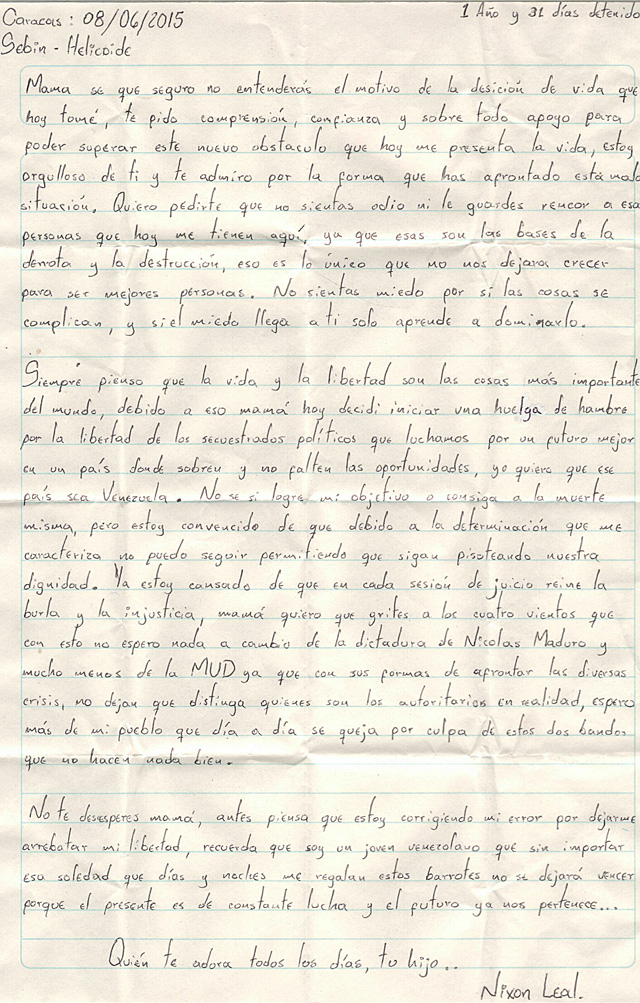 Caracas: 08/06/2015
1 Año y 31 días detenido
Sebin - Helicoide
Mama se que seguro no entenderás el motivo de la desición de vida que
hoy tomé, te pido comprensión, confianza y sobre todo apoyo para
poder superar este nuevo obstaculo que hoy me presenta la vida, estoy
orgulloso de ti y te admiro por la forma que has afrontado está mala
situación. Quiero pedirte que no sientas odio ni le guardes rencor a esa
personas que hoy me tienen aquí, ya que esas son las bases de la
derrota y la destrucción, eso es lo único que no nos dejara crecer
para ser mejores personas. No sientas miedo por si las cosas se
complican, y si el miedo llega a ti solo aprende a dominarlo.
Siempre pienso que la vida y la libertad son las cosas más importante
del mundo, debido a eso mamá hoy decidi iniciar una huelga de hambre
por la libertad de los secuestrados políticos que luchamos por un futuro mejor
en un país donde sobren y no falten las oportunidades, yo quiero que ese
país sea Venezuela. No se si logre mi objetivo o consiga a la muerte
misma, pero estoy convencido de que debido a la determinación que me
caracteriza no puedo seguir permitiendo que sigan pisoteando nuestra
dignidad. Ya estoy cansado de que en cada sesión de juicio reine la
burla y la injusticia, mamá quiero que grites a los cuatro vientos que
con esto no espero nada a cambio de la dictadura de Nicolas Maduro y
mucho menos de la MUD ya que con sus formas de afrontar las diversas
crisis, no dejan que distinga quienes son los autoritarios en realidad, espero
más de mi pueblo que día a día se queja por culpa de estos dos bandos
que no hacen nada bien.
No te desesperes mamá, antes piensa que estoy corrigiendo mi error por dejarme
arrebatar mi libertad, recuerda que soy un joven venezolano que sin importar
esa soledad que días y noches me regalan estos barrotes no se dejará vencer
porque el presente es de constante lucha y el futuro ya nos pertenece...
Quién te adora todos los días, tu hijo..
Nixon Leal.